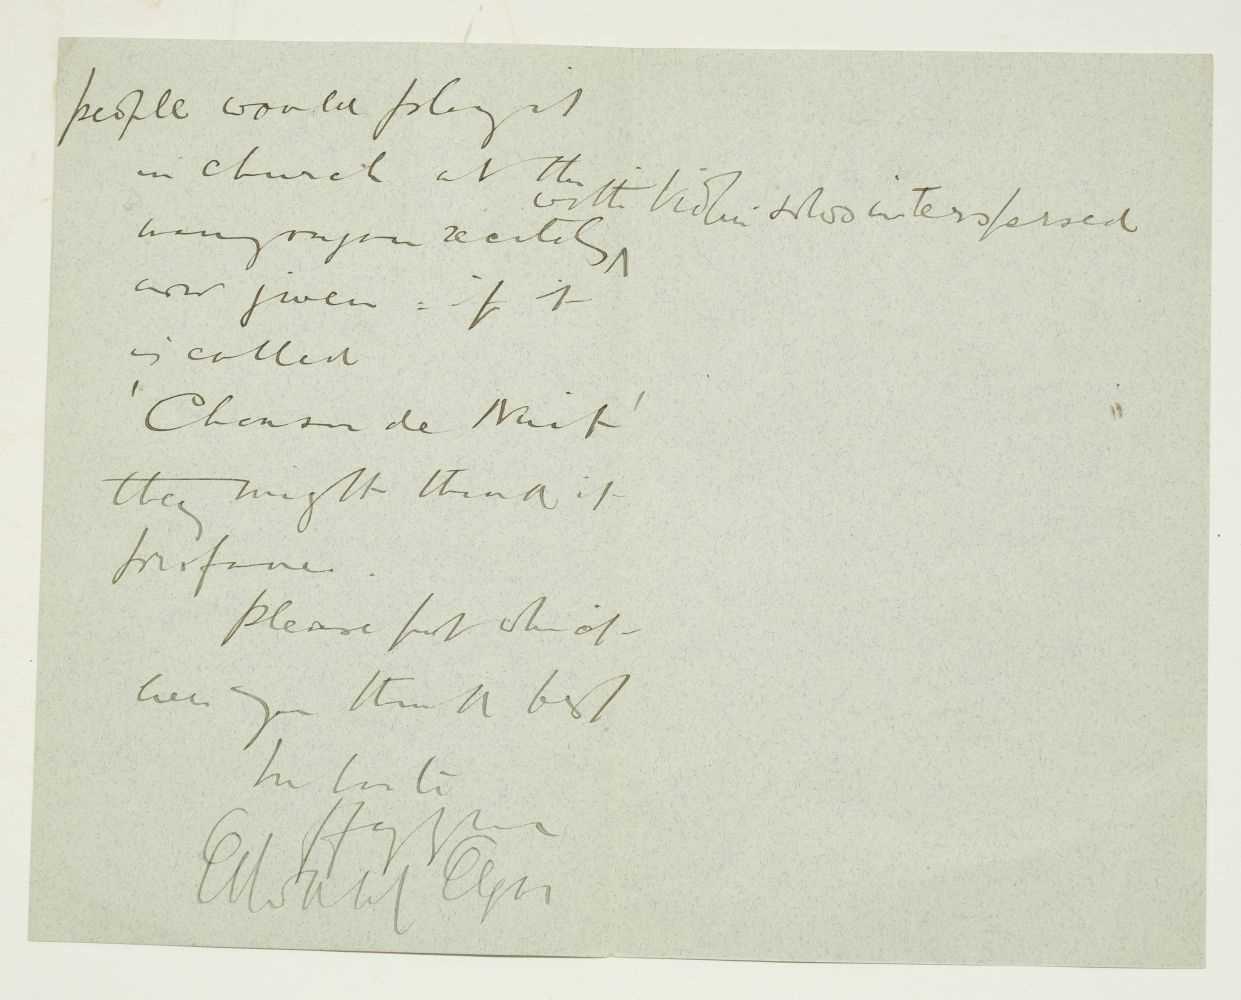 people would play it
in church at the
with Violin solos interspersed
many organ recitals ^
now given = if it
is called
'Chanson de Nuit'
they might think it
profane.
Please put which
ever you think best
In haste
Edward Elgar